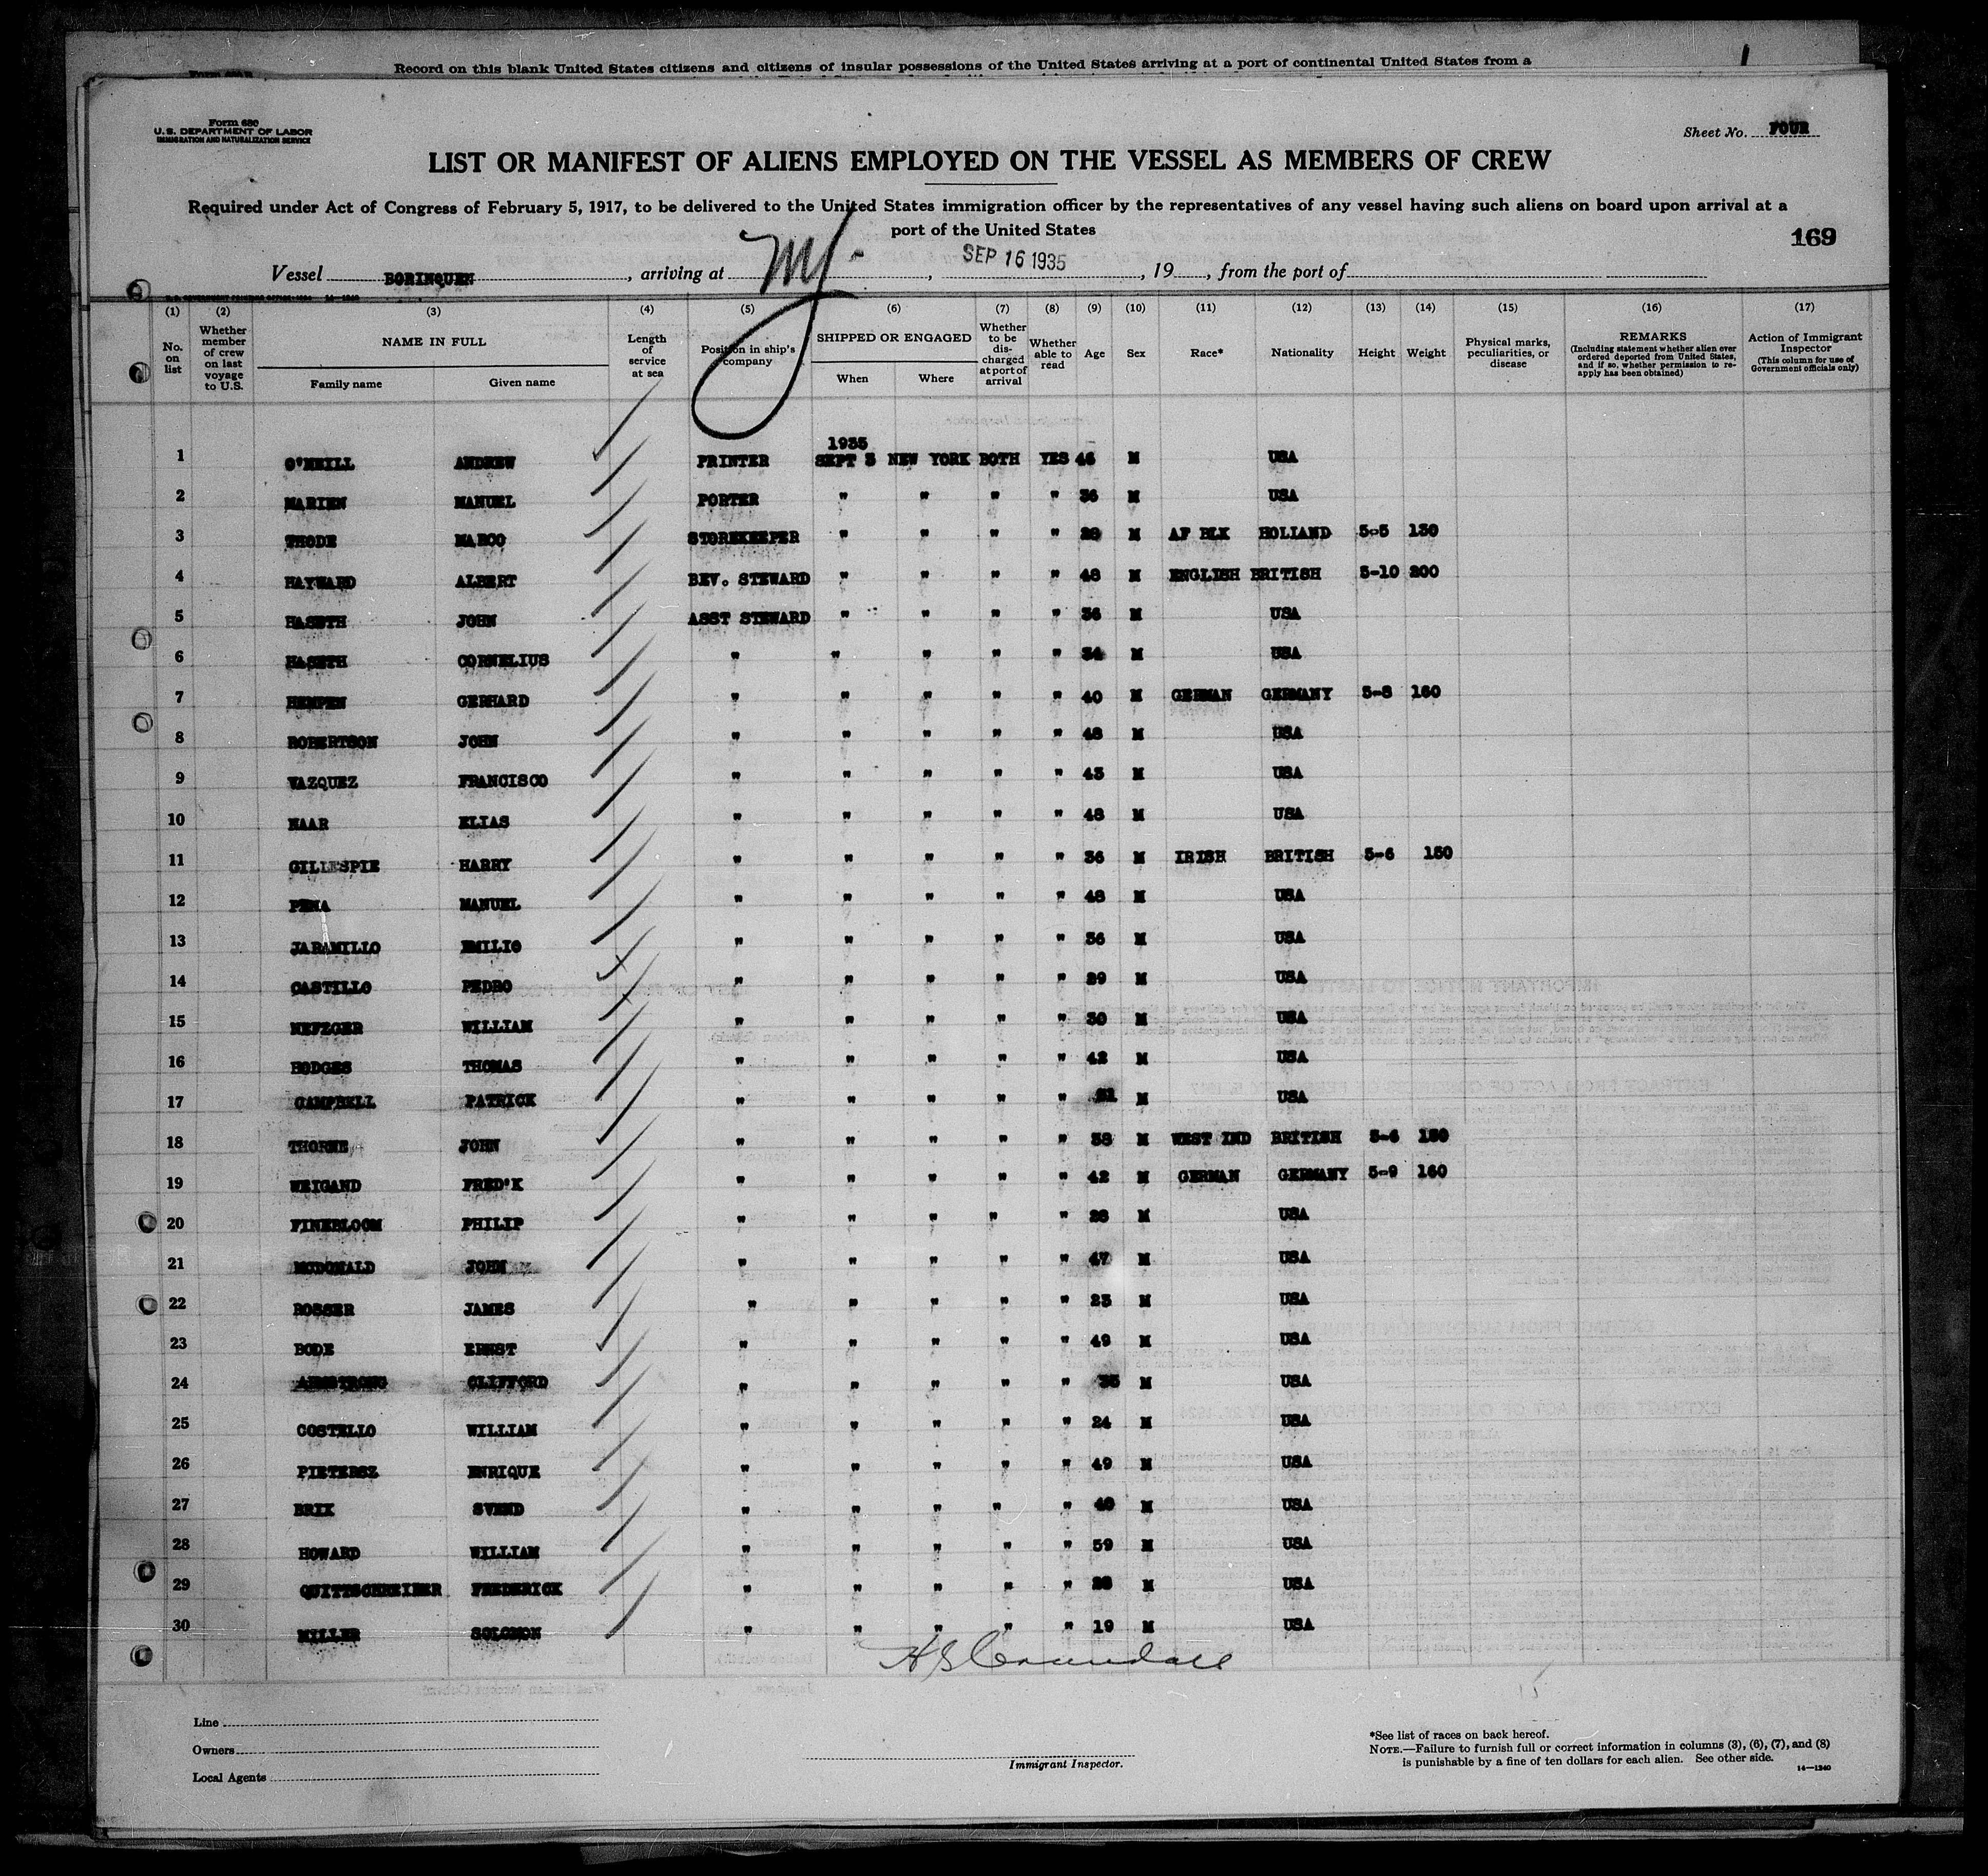 Record on this blank United States citizens and citizens of insular possessions of the United States arriving at a port of continental United States from a
Form 680
U. S. DEPARTMENT OF LABOR
IMMIGRATION AND NATURALIZATION SERVICE
Sheet No. FOUR
LIST OR MANIFEST OF ALIENS EMPLOYED ON THE VESSEL AS MEMBERS OF CREW
Required under Act of Congress of February 5, 1917, to be delivered to the United States immigration officer by the representatives of any vessel having such aliens on board upon arrival at a
port of the United States
169
Vessel BORINQUEN, arriving at NY, SEP 16 1935, 19, from the port of
(1) (2) (3) (4) (5) (6) (7) (8) (9) (10) (11) (12) (13) (14) (15) (16) (17)
No. on list Whether member of crew on last voyage to U.S. NAME IN FULL Family name Given name Length of service at sea Position in ship's company SHIPPED OR ENGAGED When Where Whether to be discharged at port of arrival Whether able to read Age Sex Race* Nationality Height Weight Physical marks, peculiarities, or disease REMARKS (Including statement whether alien ever ordered deported from United States, and if so, whether permission to re-apply has been obtained) Action of Immigrant Inspector (This column for use of Government officials only)
1935
1 O'NEILL ANDREW PRINTER SEPT 3 NEW YORK BOTH YES 46 M USA
2 MARIEN MANUEL PORTER " " " " 36 M USA
3 THODE MARCO STOREKEEPER " " " " 28 M AF BLK HOLLAND 5-5 130
4 HAYWARD ALBERT BEV. STEWARD " " " " 48 M ENGLISH BRITISH 5-10 200
5 HASETH JOHN ASST STEWARD " " " " 36 M USA
6 HASETH CORNELIUS " " " " " 34 M USA
7 HEMPEN GERHARD " " " " " 40 M GERMAN GERMANY 5-8 160
8 ROBERTSON JOHN " " " " " 48 M USA
9 VAZQUEZ FRANCISCO " " " " " 43 M USA
10 HAAR ELIAS " " " " " 48 M USA
11 GILLESPIE HARRY " " " " " 36 M IRISH BRITISH 5-6 150
12 PENA MANUEL " " " " " 48 M USA
13 JARAMILLO EMILIO " " " " " 36 M USA
14 CASTILLO PEDRO " " " " " 29 M USA
15 NEFZGER WILLIAM " " " " " 30 M USA
16 HODGES THOMAS " " " " " 42 M USA
17 CAMPBELL PATRICK " " " " " 21 M USA
18 THORNE JOHN " " " " " 38 M WEST IND BRITISH 5-6 150
19 WEIGAND FRED'K " " " " " 42 M GERMAN GERMANY 5-9 160
20 FINEBLOOM PHILIP " " " " " 28 M USA
21 MCDONALD JOHN " " " " " 47 M USA
22 ROSSER JAMES " " " " " 23 M USA
23 BODE ERNST " " " " " 49 M USA
24 ARMSTRONG CLIFFORD " " " " " 35 M USA
25 COSTELLO WILLIAM " " " " " 24 M USA
26 PIETERSZ ENRIQUE " " " " " 49 M USA
27 BRIX SVEND " " " " " 40 M USA
28 HOWARD WILLIAM " " " " " 59 M USA
29 QUITTSCHREIBER FREDERICK " " " " " 28 M USA
30 MILLER SOLOMON " " " " " 19 M USA
Line
Owners
Local Agents
Immigrant Inspector.
*See list of races on back hereof.
NOTE.—Failure to furnish full or correct information in columns (3), (6), (7), and (8)
is punishable by a fine of ten dollars for each alien. See other side.
14—1240